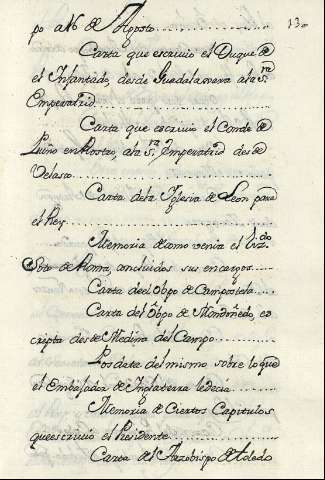 13
po a 16 de Agosto
Carta que escrivió el Duque de
el Infantado, desde Guadalaxara a la S.ra
Emperatriz
Carta que escrivio el Conde de
en Rostro, a la S.ra Imperatriz desde
Velasco
Carta dela Iglesia de Leon para
el Rey
Memoria de como venia el Viz.do
Soto de Roma, concluidos sus encargos
Carta de el Obpo de Campostela
Carta del Obpo de Mondoñedo, es
cripta desde Medina del Campo
Posdata del mismo sobre lo que
el Embajador de Inglaterra le decia
Memoria de Ciertos Capitulos
que escrivió el Presidente
Carta de el Arzobispo de Toledo